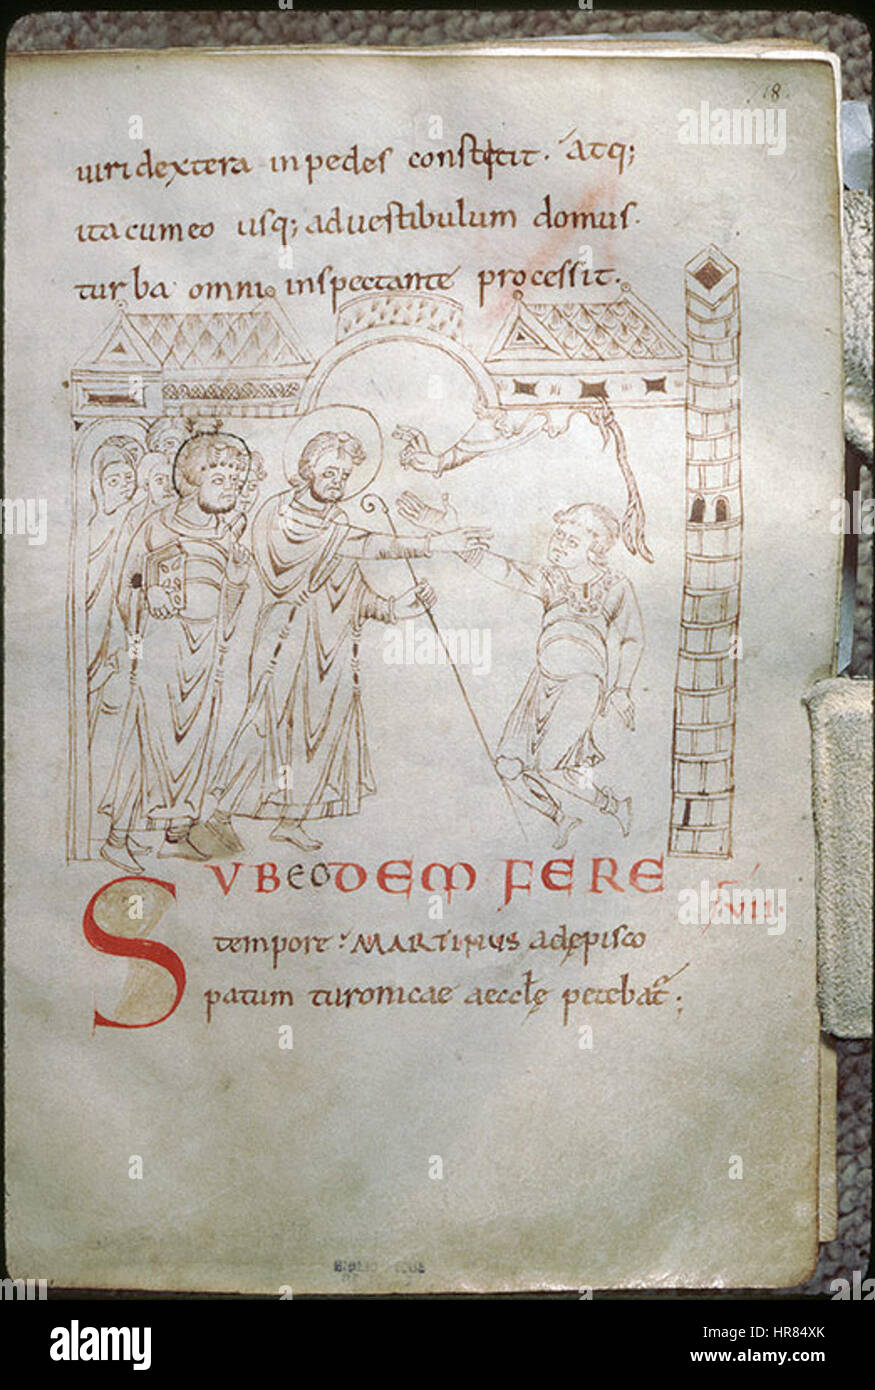 18
uiri dextera in pedes constitit. atq;
ita cum eo usq; ad uestibulum domus.
turba omni inspectante processit.
SVB eoDEM FERE
.VII.
tempore. MARTINUS ad ępisco
patum turonicae aecclę petebat̃;
a alamy stock photo
HR84XK
www.alamy.com